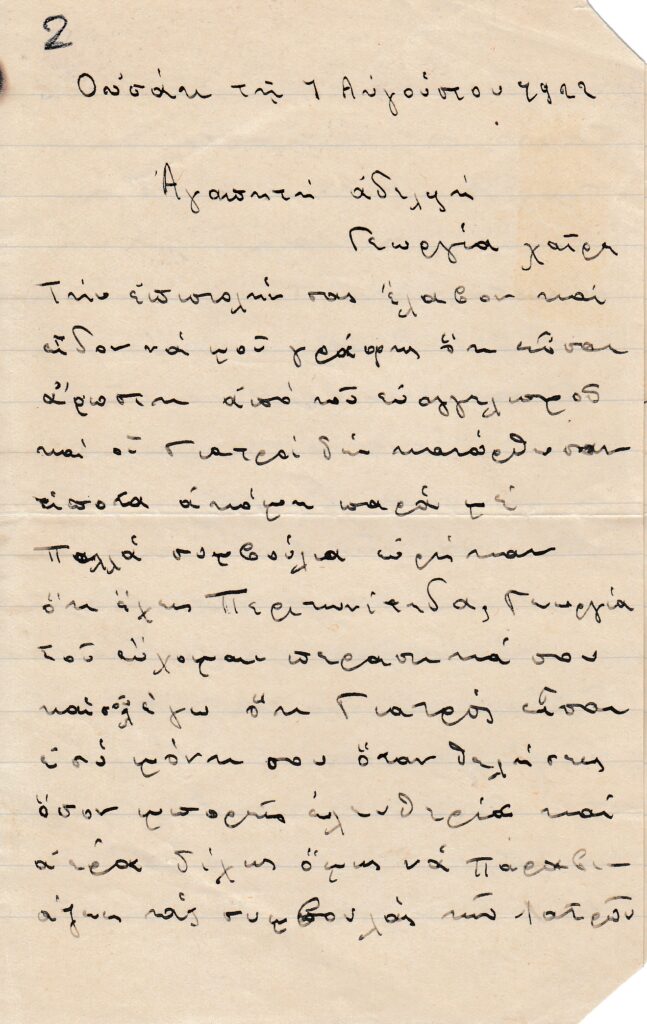 2
Οὐσάκ τῇ 7 Αὐγούστου 1922
Ἀγαπητή ἀδελφή
Γεωργία χαῖρε
Τήν ἐπιστολήν σας ἔλαβον καί
εἶδον νά μοῦ γράφης ὅτι εἶσαι
ἄρωστη ἀπό τοῦ εὐαγγελισμοῦ
καί οἱ Γιατροί δέν κατόρθωσαν
τίποτα ἀκόμη παρά μέ
Πολλά συμβούλια εὑρῆκαν
ὅτι ἔχεις Περιτωνίτηδα, Γεωργία
σοῦ εὔχομαι περαστικά σου
καί σοῦ λέγω ὅτι Γιατρός εἶσαι
ἐσύ μόνη σου ὅταν θελήσεις
ὅσον μπορεῖς ἐλευθερία καί
ἀέρα δίχως ὅμως νά Παραβι-
άζεις τάς συμβουλάς τῶν Ἰατρῶν